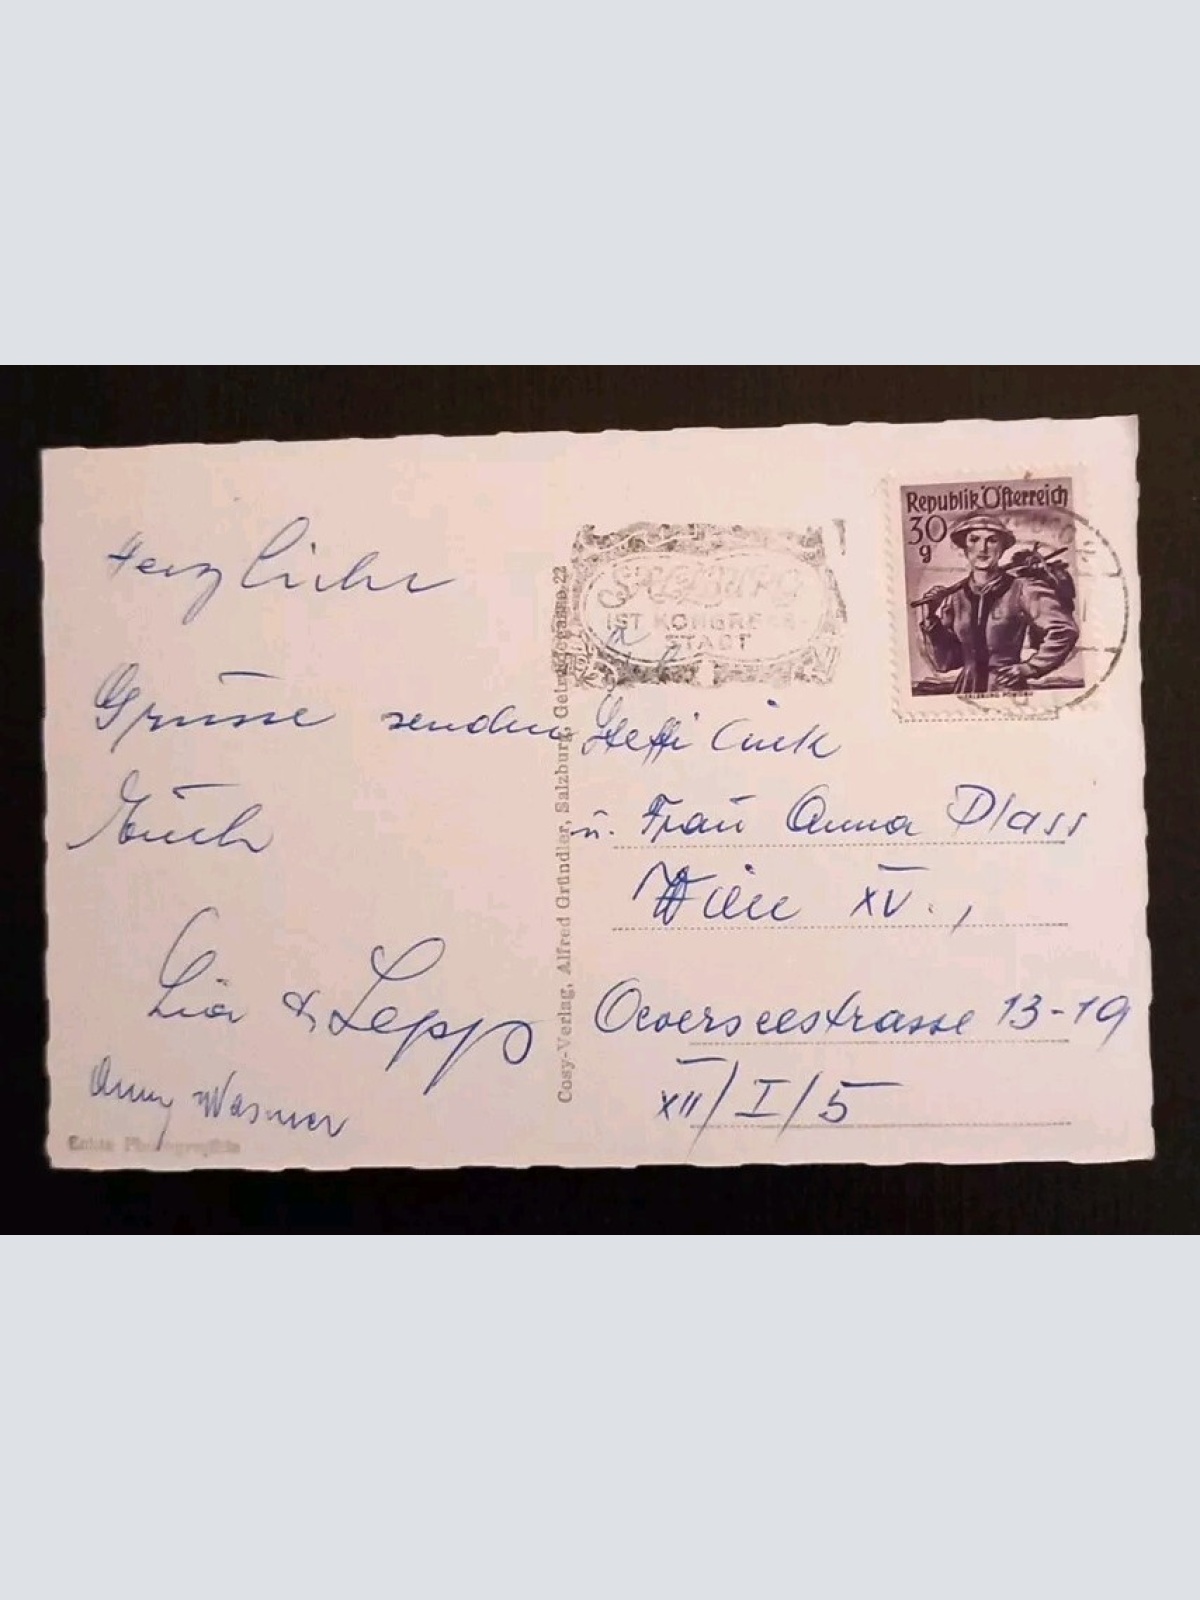 Herzliche
Grüsse senden
Euch
Lia & Sepp
Anny Wasmer
Echte Photographie
Cosy-Verlag, Alfred Gründler, Salzburg, Getreidegasse 22
SALZBURG
IST KONGRESS-
STADT
Republik Österreich
30
g
Steffi Cink
u. Frau Anna Plass
Wien XV.,
Oeverseestrasse 13-19
XII/I/5